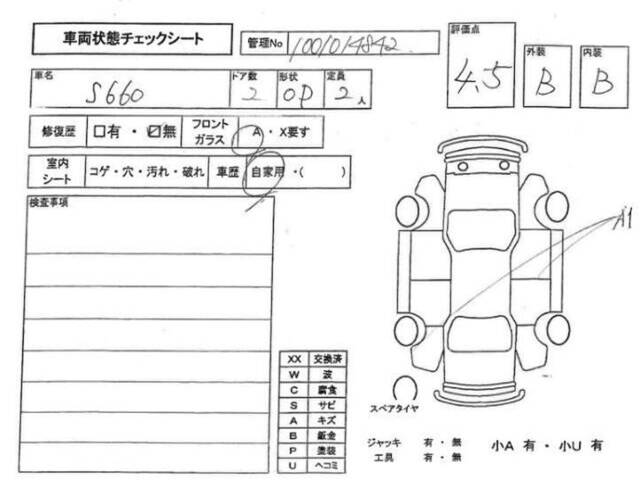 車両状態チェックシート
管理No 1001014842
評価点 4.5
外装 B
内装 B
車名 S660
ドア数 2
形状 OP
定員 2人
修復歴 □有・☑無
フロントガラス A・X要す
室内シート コゲ・穴・汚れ・破れ
車歴 自家用・( )
検査事項
A1
XX 交換済
W 波
C 腐食
S サビ
A キズ
B 鈑金
P 塗装
U ヘコミ
スペアタイヤ
ジャッキ 有・無
工具 有・無
小A 有・小U 有